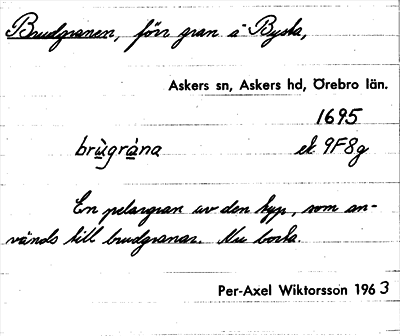 Brudgranen, förr gran å Bysta,
Askers sn, Askers hd, Örebro län.
1695
brùgràna ek 9F8g
En pelargran av den typ, som an-
vänds till brudgranar. Nu borta.
Per-Axel Wiktorsson 1963